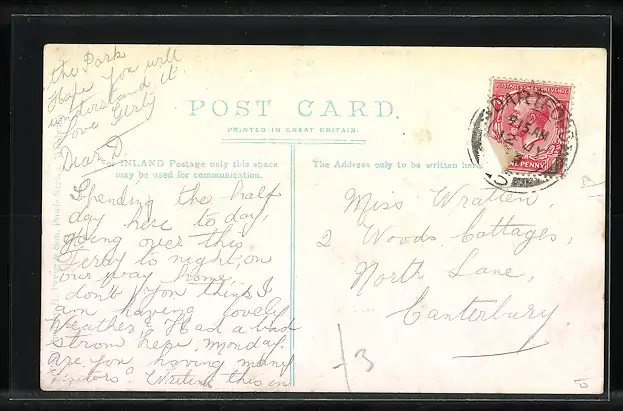 the Park
Hope you will
understand it.
Love Girly
POST CARD.
PRINTED IN GREAT BRITAIN.
For INLAND Postage only this space
may be used for communication.
The Address only to be written here
Dear D.
Spending the half
day here to day,
going over this
Ferry to night, on
our way home,
don't you think I
am having lovely
weather & Had a bad
storm here monday.
Are you having many
visitors? Writing this in
Miss Wratten,
2 Woods Cottages,
North Lane,
Canterbury
DARTFORD
9.15 AM
12 MY
ONE PENNY